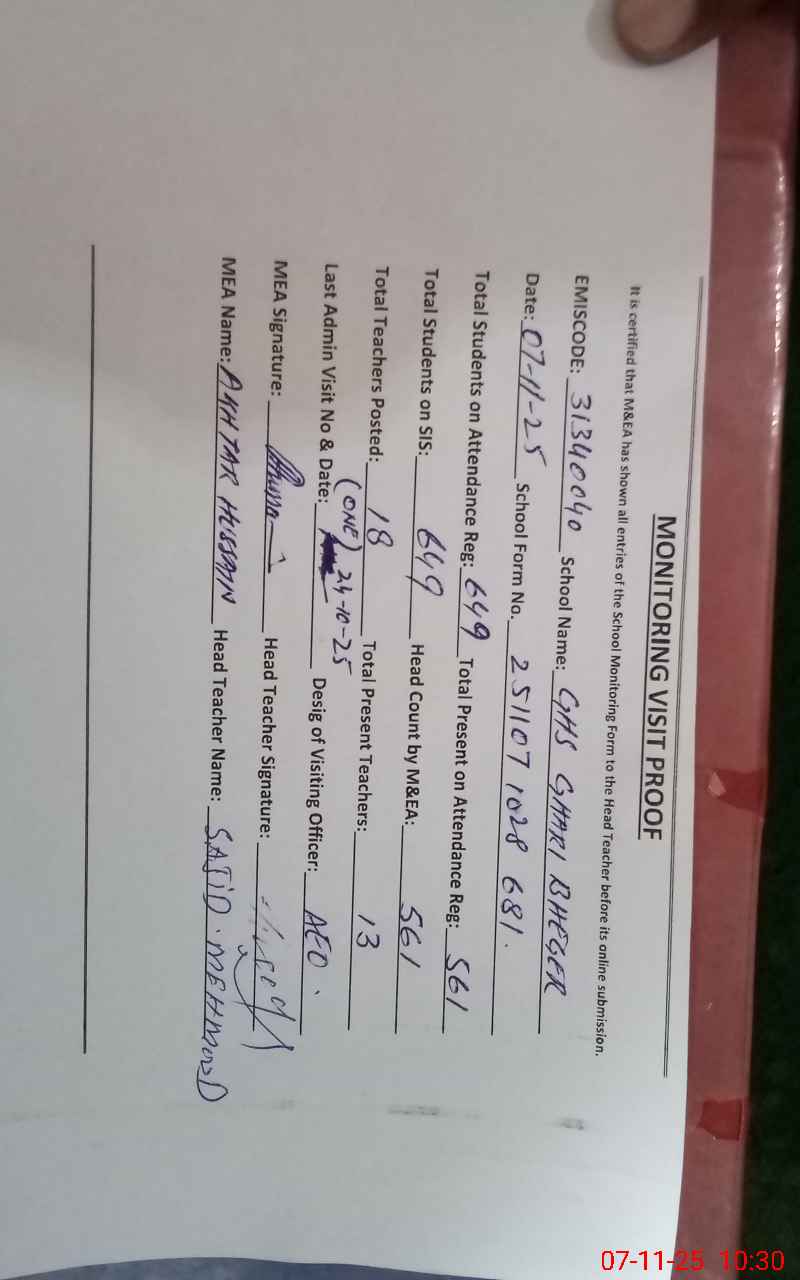 MONITORING VISIT PROOF
It is certified that M&EA has shown all entries of the School Monitoring Form to the Head Teacher before its online submission.
EMISCODE: 31340040 School Name: GHS GHARI BHEGER
Date: 07-11-25 School Form No. 251107 1028 681.
Total Students on Attendance Reg: 649 Total Present on Attendance Reg: 561
Total Students on SIS: 649 Head Count by M&EA: 561
Total Teachers Posted: 18 Total Present Teachers: 13
Last Admin Visit No & Date: (ONE) 24-10-25 Desig of Visiting Officer: AEO.
MEA Signature: Head Teacher Signature:
MEA Name: AKHTAR HUSSAIN Head Teacher Name: SAJID. MEHMOOD
07-11-25 10:30